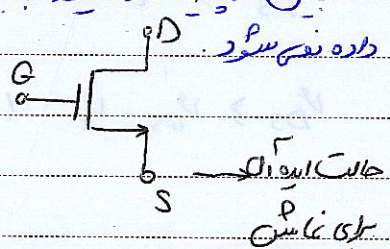 داده نمی شود.
D
G
S
حالت ایده آل
برای نمایش